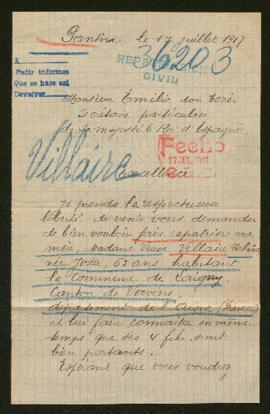 Pantin le 17 juillet 1917
36203
REPATRIACION
CIVIL
A
Pedir informes
Que se hace así
Devolver
Monsieur Emilio don Torrès
Secrétaire particulier
de sa majesté le Roi d'Espagne
Fecho
27 JUL. 1917
Villaire
Excellence
Je prends la respectueuse
liberté de venir vous demander
de bien vouloir faire rapatrier ma
mère, Madame Veuve Villaire
née José, 63 ans habitant
la Commune de Laigny
Canton de Vervins
département de l'Aisne (France)
et lui faire connaître en même
temps que ses 4 fils sont
bien portants.
Espérant que vous voudrez